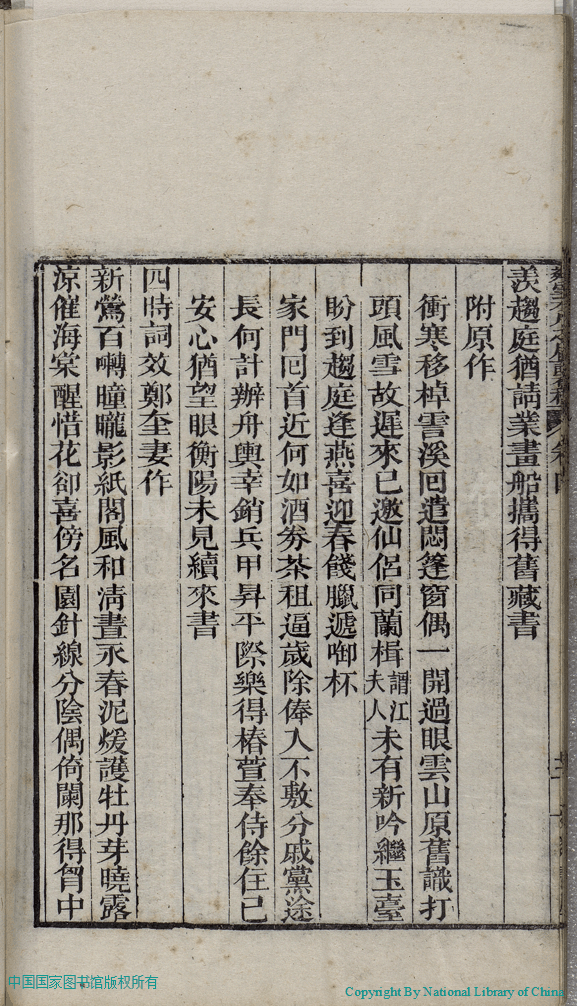 羨趨庭猶請業畫船攜得舊藏書
附原作
衝寒移棹霅溪回遣悶篷窗偶一開過眼雲山原舊識打
頭風雪故遲來已邀仙侶同蘭楫謂江夫人未有新吟繼玉臺
盼到趨庭逢燕喜迎春餞臘遞啣杯
家門回首近何如酒券茶租逼歲除俸入不敷分戚黨途
長何計辦舟輿幸銷兵甲昇平際樂得椿萱奉侍餘住已
安心猶望眼衡陽未見續來書
四時詞效鄭奎妻作
新鶯百囀曈曨影紙閣風和淸晝永春泥煖護牡丹芽曉露
涼催海棠醒惜花卻喜傍名園針線分陰偶倚闌那得胷中
中国国家图书馆版权所有
Copyright By National Library of China